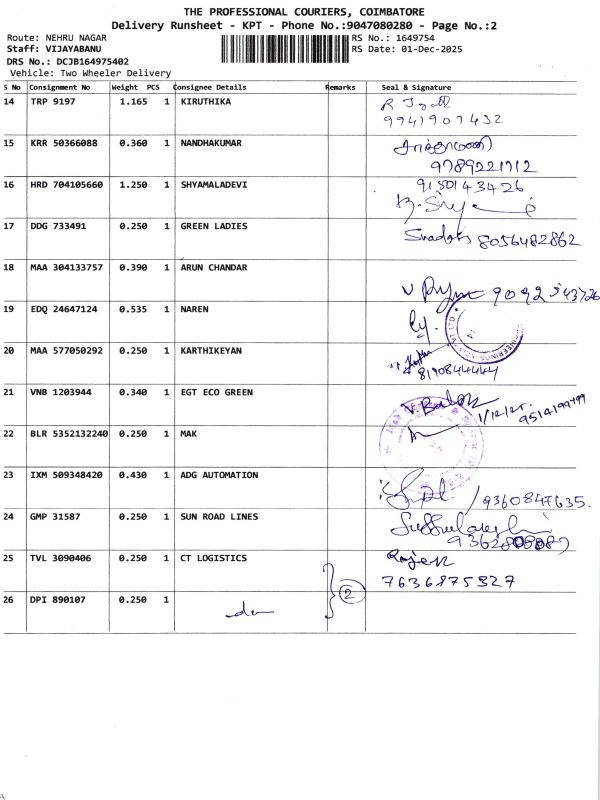 THE PROFESSIONAL COURIERS, COIMBATORE
Delivery Runsheet - KPT - Phone No.:9047080280 - Page No.:2
Route: NEHRU NAGAR RS No.: 1649754
Staff: VIJAYABANU RS Date: 01-Dec-2025
DRS No.: DCJB164975402
Vehicle: Two Wheeler Delivery
S No Consignment No Weight PCS Consignee Details Remarks Seal & Signature
14 TRP 9197 1.165 1 KIRUTHIKA
9941907432
15 KRR 50366088 0.360 1 NANDHAKUMAR
9789221712
16 HRD 704105660 1.250 1 SHYAMALADEVI 9130143426
17 DDG 733491 0.250 1 GREEN LADIES 8056482862
18 MAA 304133757 0.390 1 ARUN CHANDAR
19 EDQ 24647124 0.535 1 NAREN
20 MAA 577050292 0.250 1 KARTHIKEYAN
8190844444
21 VNB 1203944 0.340 1 EGT ECO GREEN 1/12/25. 9514199799
22 BLR 5352132240 0.250 1 MAK
23 IXM 509348420 0.430 1 ADG AUTOMATION
9360847635.
24 GMP 31587 0.250 1 SUN ROAD LINES
25 TVL 3090406 0.250 1 CT LOGISTICS Rajesh
7636875327
26 DPI 890107 0.250 1 2